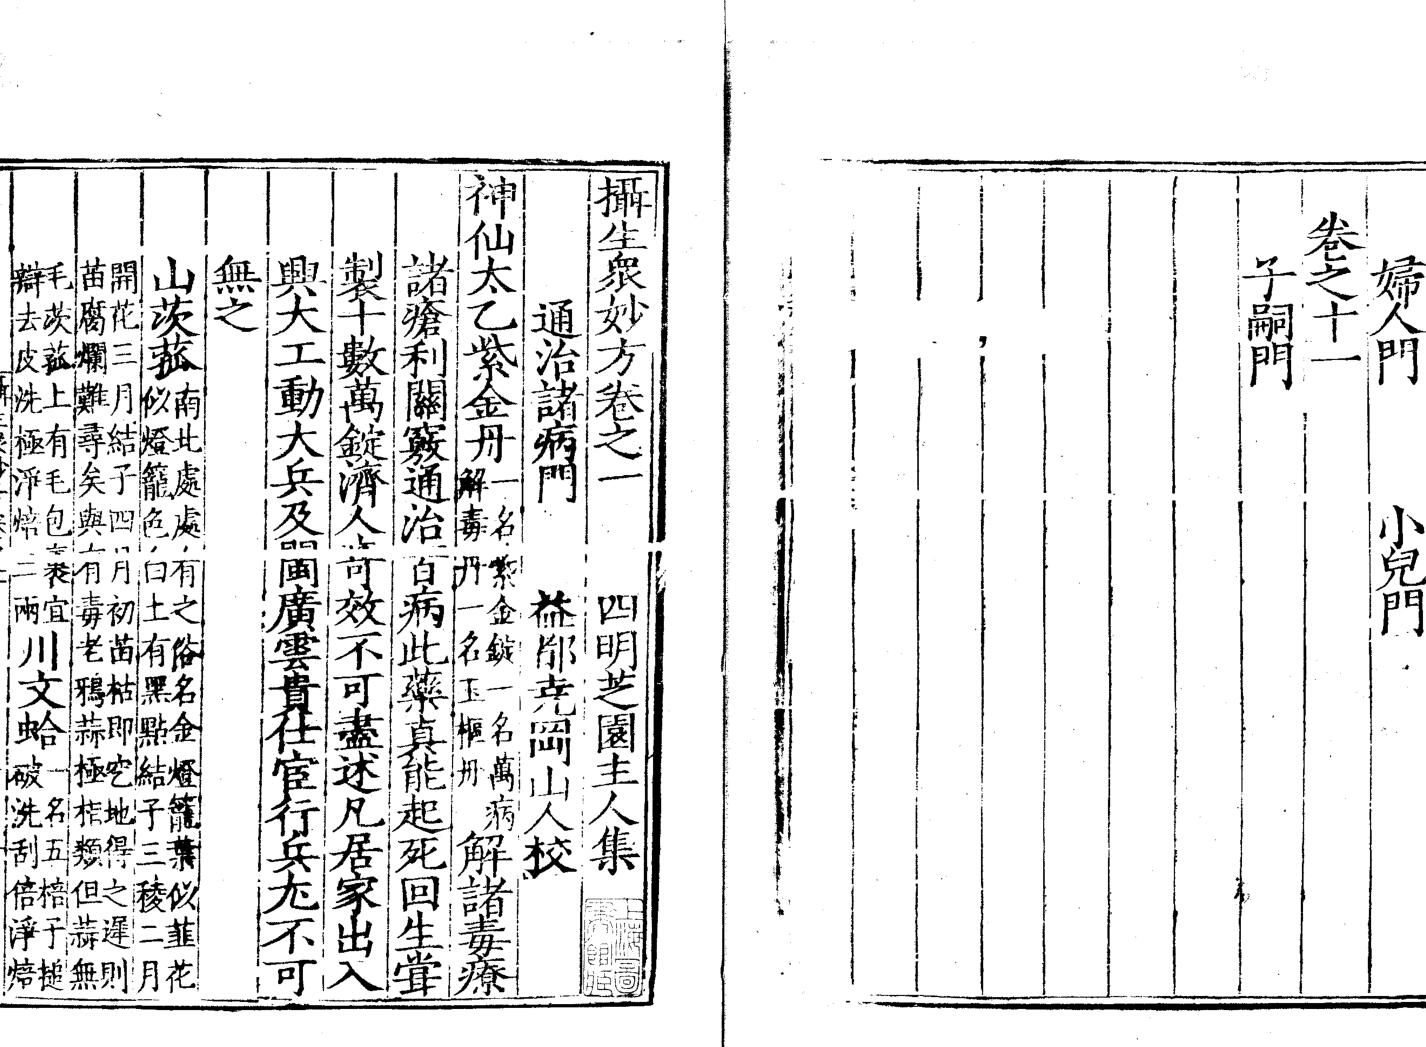 婦人門　小兒門
卷之十一
子嗣門
攝生衆妙方卷之一　四明芝園主人集
通治諸病門　益郡堯岡山人校
神仙太乙紫金丹一名紫金錠一名萬病解毒丹一名玉樞丹　解諸毒療
諸瘡利關竅通治百病此藥真能起死回生甞
製十數萬錠濟人奇效不可盡述凡居家出入
興大工動大兵及閩廣雲貴仕宦行兵尤不可
無之
山茨菰南北處處有之俗名金燈籠葉似韮花似燈籠色白土有黑點結子三稜二月
開花三月結子四月初苗枯即空地得之遲則苗腐爛難尋矣與有毒老鴉蒜極相類但蒜無
毛茨菰上有毛包裹宜辯去皮洗極淨焙二兩川文蛤一名五棓子搥破洗刮倍淨焙